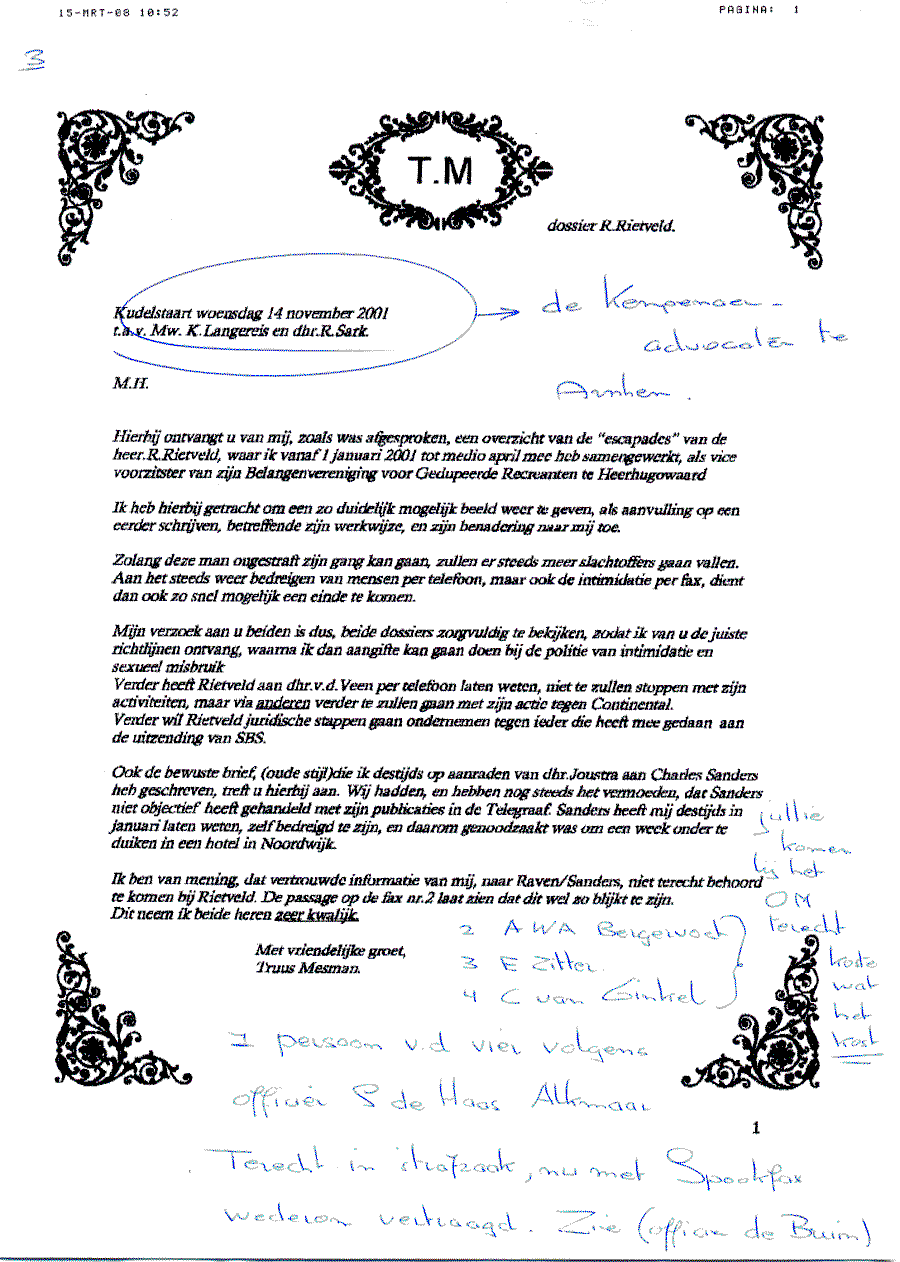 15-MRT-08 10:52
PAGINA: 1
3
T.M
dossier R.Rietveld.
Kudelstaart woensdag 14 november 2001
t.a.v. Mw. K.Langereis en dhr.R.Sark.
de Kempenaer
advocaten te
Arnhem.
M.H.
Hierbij ontvangt u van mij, zoals was afgesproken, een overzicht van de "escapades" van de
heer.R.Rietveld, waar ik vanaf 1 januari 2001 tot medio april mee heb samengewerkt, als vice
voorzitster van zijn Belangenvereniging voor Gedupeerde Recreanten te Heerhugowaard
Ik heb hierbij getracht om een zo duidelijk mogelijk beeld weer te geven, als aanvulling op een
eerder schrijven, betreffende zijn werkwijze, en zijn benadering naar mij toe.
Zolang deze man ongestraft zijn gang kan gaan, zullen er steeds meer slachtoffers gaan vallen.
Aan het steeds weer bedreigen van mensen per telefoon, maar ook de intimidatie per fax, dient
dan ook zo snel mogelijk een einde te komen.
Mijn verzoek aan u beiden is dus, beide dossiers zorgvuldig te bekijken, zodat ik van u de juiste
richtlijnen ontvang, waarna ik dan aangifte kan gaan doen bij de politie van intimidatie en
sexueel misbruik
Verder heeft Rietveld aan dhr.v.d.Veen per telefoon laten weten, niet te zullen stoppen met zijn
activiteiten, maar via anderen verder te zullen gaan met zijn actie tegen Continental.
Verder wil Rietveld juridische stappen gaan ondernemen tegen ieder die heeft mee gedaan aan
de uitzending van SBS.
Ook de bewuste brief, (oude stijl)die ik destijds op aanraden van dhr.Joustra aan Charles Sanders
heb geschreven, treft u hierbij aan. Wij hadden, en hebben nog steeds het vermoeden, dat Sanders
niet objectief heeft gehandeld met zijn publicaties in de Telegraaf. Sanders heeft mij destijds in
januari laten weten, zelf bedreigd te zijn, en daarom genoodzaakt was om een week onder te
duiken in een hotel in Noordwijk.
Ik ben van mening, dat vertrouwde informatie van mij, naar Raven/Sanders, niet terecht behoord
te komen bij Rietveld. De passage op de fax nr.2 laat zien dat dit wel zo blijkt te zijn.
Dit neem ik beide heren zeer kwalijk.
jullie
komen
bij het
OM
terecht
koste
wat
het
kost
Met vriendelijke groet,
Truus Mesman.
2 AWA Bergervoet
3 E Zitter.
4 C van Ginkel
1 persoon v.d vier volgens
officier S de Haas Alkmaar
1
Terecht in strafzaak, nu met Spookfax
wederom vertraagd. Zie (officier de Bruin)